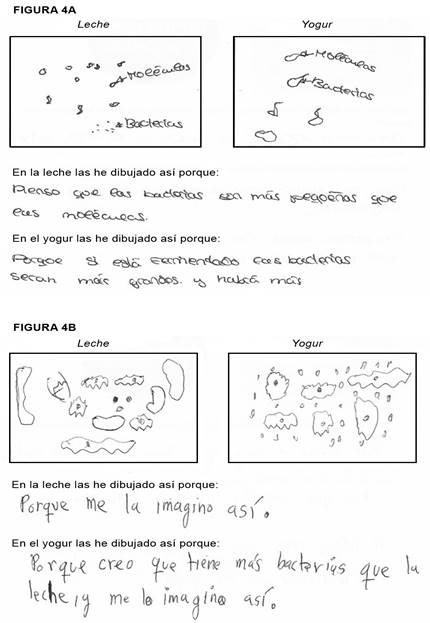 FIGURA 4A
Leche
Yogur
Moléculas
Bacterias
Moléculas
Bacterias
En la leche las he dibujado así porque:
Pienso que las bacterias son más pequeñas que
las moléculas.
En el yogur las he dibujado así porque:
Porque si está fermentado las bacterias
seran más grandes. y habrá más
FIGURA 4B
Leche
Yogur
En la leche las he dibujado así porque:
Porque me la imagino así.
En el yogur las he dibujado así porque:
Porque creo que tiene más bacterias que la
leche, y me lo imagino así.